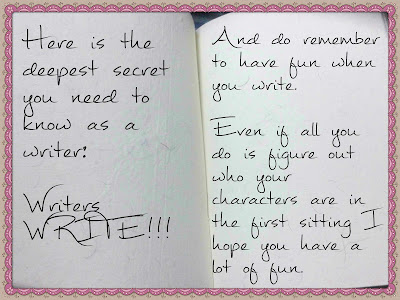 Here is the
deepest secret
you need to
know as a
writer:
Writers
WRITE!!!
And do remember
to have fun when
you write.
Even if all you
do is figure out
who your
characters are in
the first sitting I
hope you have a
lot of fun.